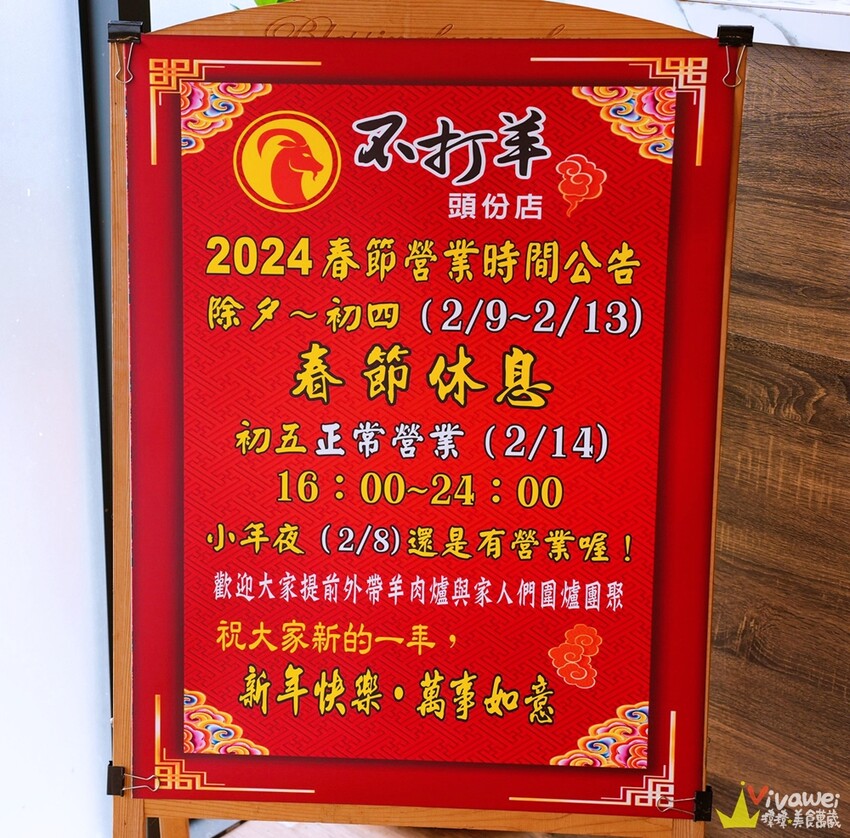 不打羊
頭份店
2024春節營業時間公告
除夕～初四（2/9~2/13）
春節休息
初五正常營業（2/14）
16：00~24：00
小年夜（2/8)還是有營業喔！
歡迎大家提前外帶羊肉爐與家人們圍爐團聚
祝大家新的一年，
新年快樂•萬事如意
Vivawei